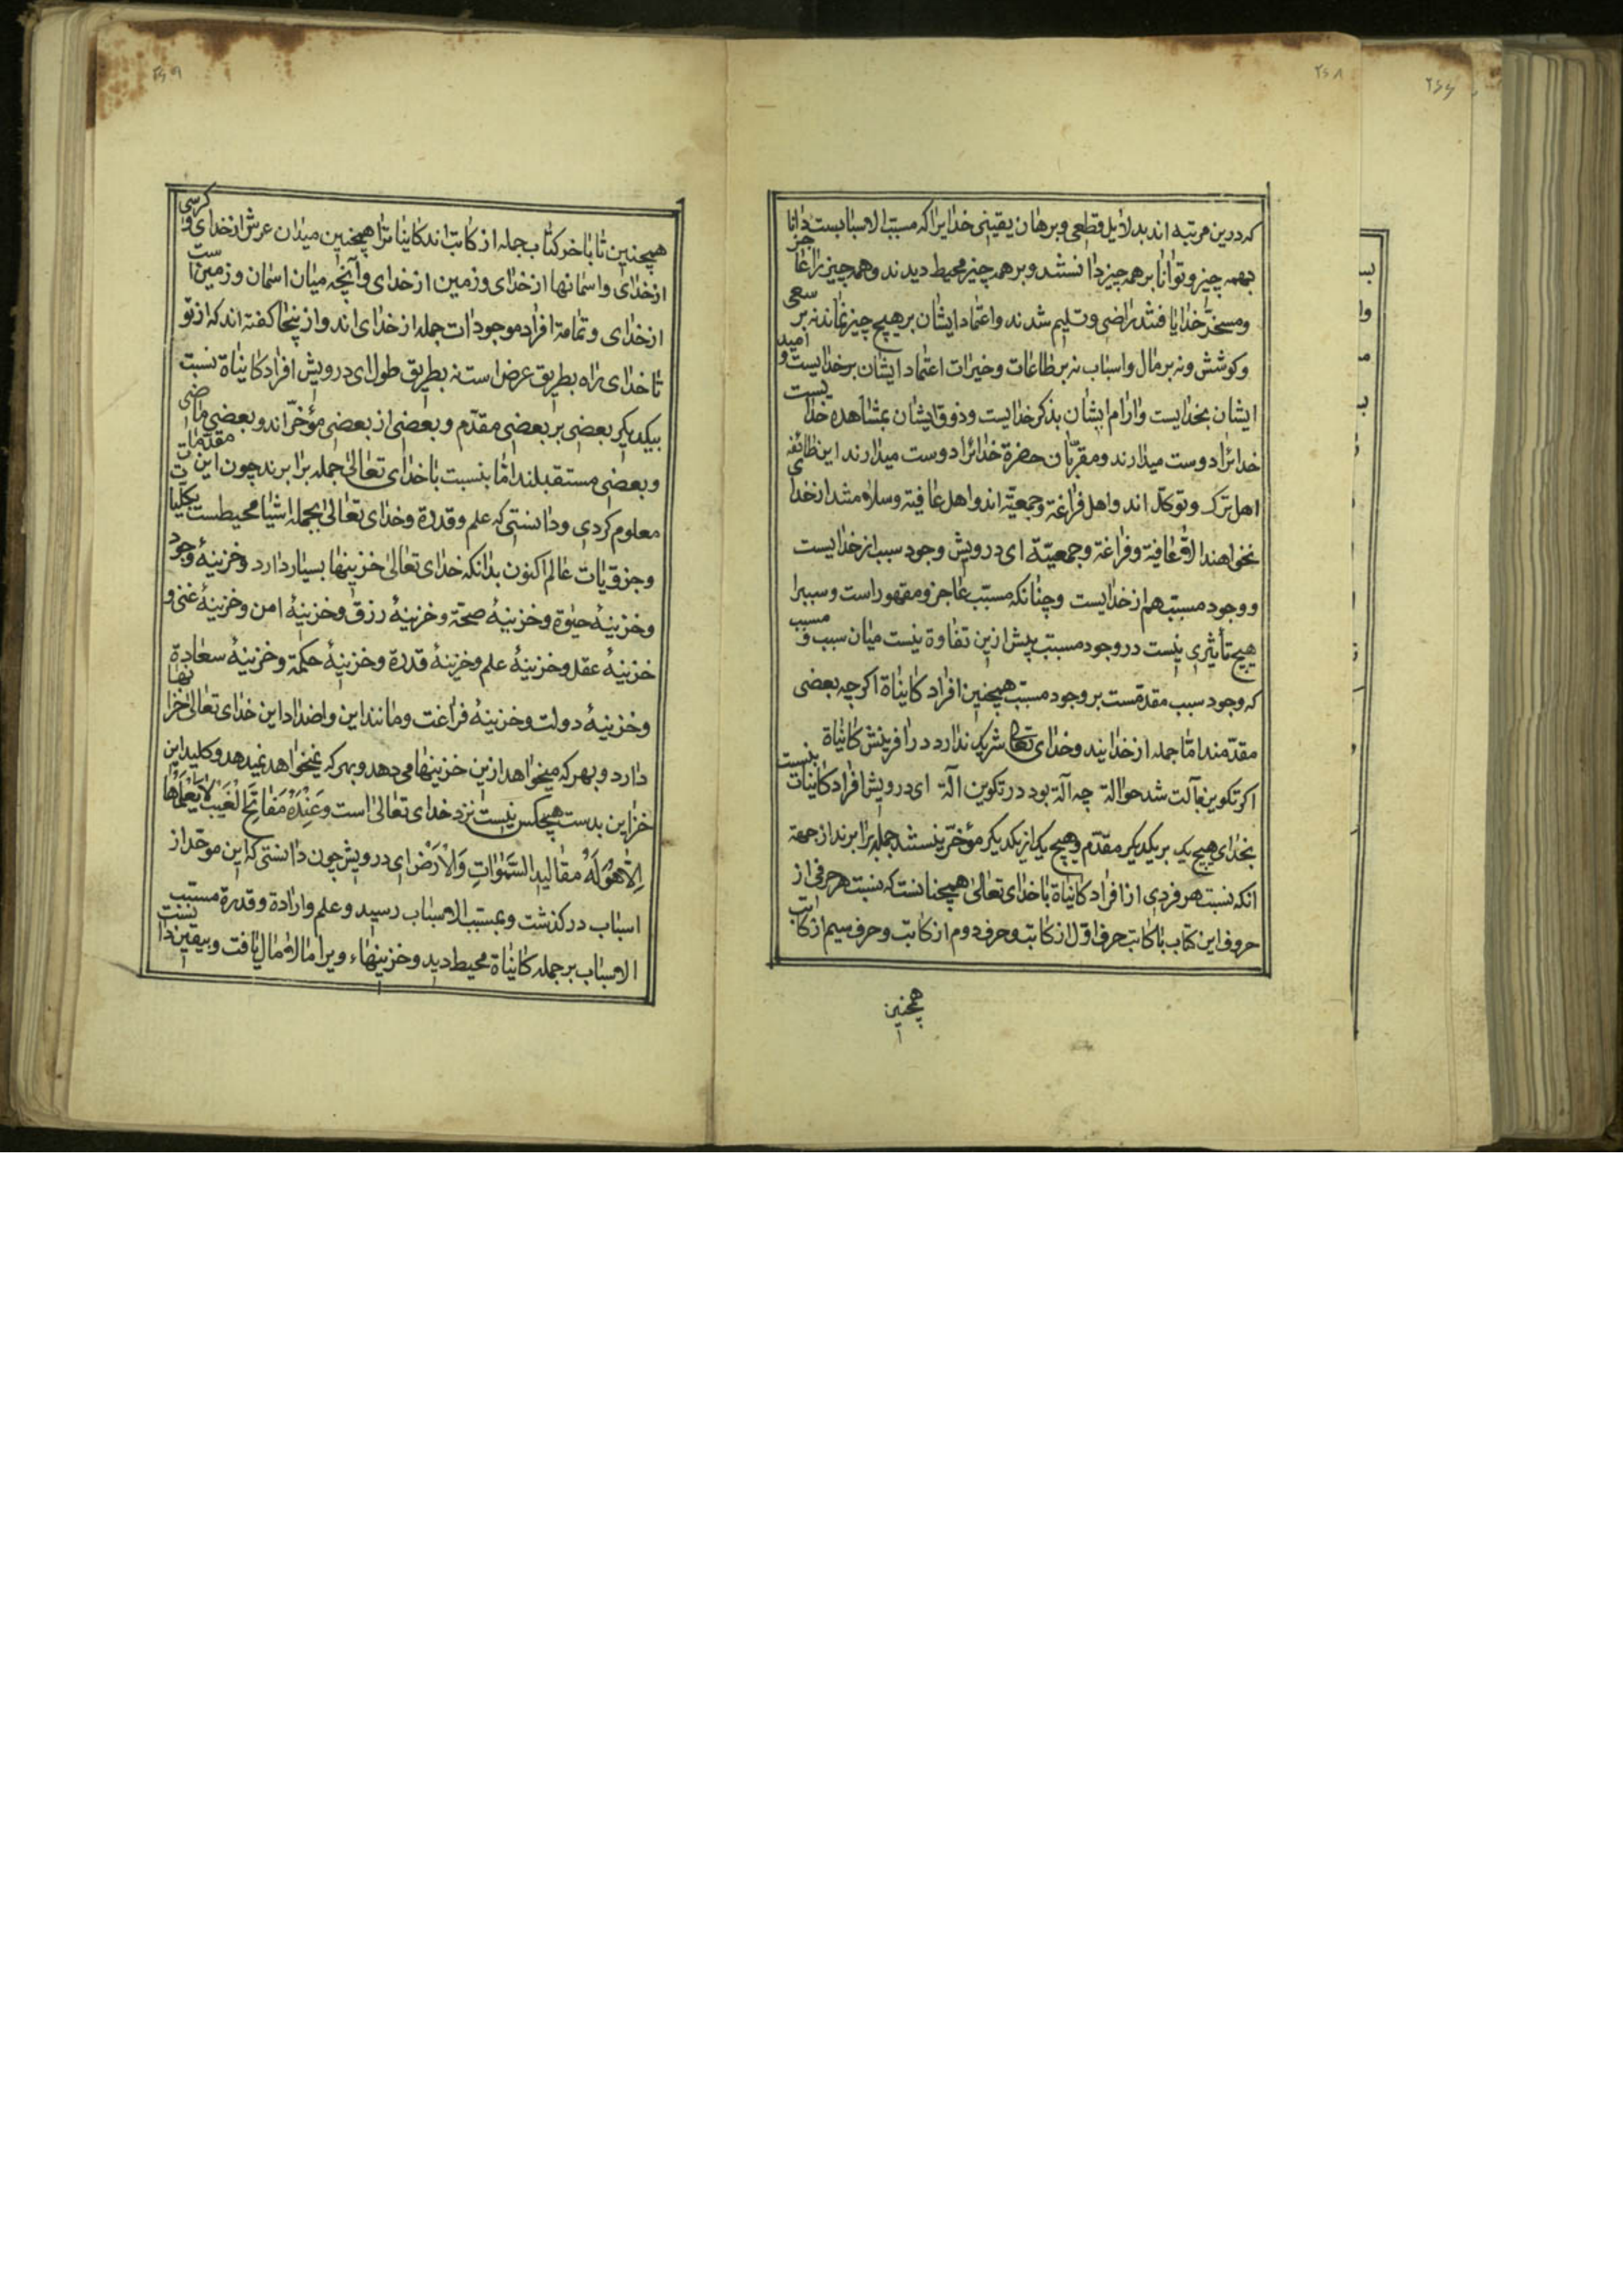 ۲۶۸
که درین مرتبه اند بدلائل قطعی و برهان یقینی خدایرا که مسبب الاسبابست دانا
بهمه چیز و توانا بر همه چیز دانستند و بر همه چیز محیط دیدند و همه چیز را عاجز
و مسخر خدا یافتند راضی و تسلیم شدند و اعتماد ایشان بر هیچ چیز نماند نه بر سعی
و کوشش و نه بر مال و اسباب نه بر طاعات و خیرات اعتماد ایشان بر خدایست و امید
ایشان بخدایست و ارام ایشان بذکر خدایست و ذوق ایشان بمشاهده خدایست
خدائرا دوست میدارند و مقربان حضرة خدائرا دوست میدارند این طائفه
اهل ترک و توکل اند و اهل فراغة و جمعیة اند و اهل عافیة و سلامتند از خدای
نخواهند الا عافیة و فراغة و جمعیة ای درویش وجود سبب از خدایست
و وجود مسبب هم از خدایست و چنانکه مسبب عاجز و مقهور است و سببرا
هیچ تأثیری نیست در وجود مسبب پیش ازین تفاوة نیست میان سبب و مسبب
که وجود سبب مقدمست بر وجود مسبب همچنین افراد کاینات اکرچه بعضی
مقدمند اما جمله از خدایند و خدای تعالی شریک ندارد در افرینش کاینات
اکر تکوین بآلت شد حوالة چه آلة بود در تکوین آلة ای درویش افراد کاینات بنسبت
بخدای هیچ یک بر یکدیکر مقدم و هیچ یک از یکدیکر مؤخر نیستند جمله برابرند از جهة
انکه نسبت هر فردی از افراد کاینات با خدای تعالی همچنانست که نسبت هر حرفی از
حروف این کتاب با کاتب حرف اول از کاتب و حرف دوم از کاتب و حرف سیم از کاتب
همچنین
۲۶۹
همچنین تا باخر کتاب جمله از کاتب اند کاینات را همچنین میدان عرش از خدای و کرسی
از خدای و اسمانها از خدای و زمین از خدای و آنچه میان اسمان و زمین است
از خدای و تمامة افراد موجودات جمله از خدای اند و از ینجا کفته اند که از تو
تا خدای راه بطریق عرض است نه بطریق طول ای درویش افراد کاینات نسبت
بیکدیکر بعضی بر بعضی مقدم و بعضی از بعضی مؤخر اند و بعضی ماضی
و بعضی مستقبلند اما بنسبت با خدای تعالی جمله برابرند چون این مقدمات
معلوم کردی و دانستی که علم و قدرة و خدای تعالی بجمله اشیا محیطست بکلیات
و جزویات عالم اکنون بدانکه خدای تعالی خزینها بسیار دارد و خزینهٔ وجود
و خزینهٔ حیوة و خزینهٔ صحة و خزینهٔ رزق و خزینهٔ امن و خزینهٔ غنی و
خزینهٔ عقل و خزینهٔ علم و خزینهٔ قدرة و خزینهٔ حکمة و خزینهٔ سعادة
و خزینهٔ دولت و خزینهٔ فراغت و مانند این و اضداد این خدای تعالی خزاینها
دارد و بهر که میخواهد ازین خزینها می دهد و بهر که نمیخواهد نمیدهد و کلید این
خزاین بدست هیچکس نیست نزد خدای تعالی است وَعِنْدَهُ مَفَاتِحُ الْغَيْبِ لَا يَعْلَمُهَا
اِلَّا هُوَ لَهُ مَقَالِيدُ السَّمَوَاتِ وَالْاَرْضِ ای درویش چون دانستی که این موحد از
اسباب در کذشت و بمسبب الاسباب رسید و علم و ارادة و قدرة مسبب
الاسباب بر جمله کاینات محیط دید و خزینهاء ویرا مالامال یافت و بیقین دانست
۲۶۶